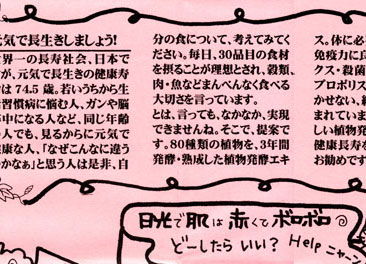 元気で長生きしましょう!
世界一の長寿社会、日本で
が、元気で長生きの健康寿
は74.5歳。若いうちから生
活習慣病に悩む人、ガンや脳
卒中になる人など、同じ年齢
の人でも、見るからに元気で
健康な人、「なぜこんなに違う
のかなぁ」と思う人は是非、自
分の食について、考えてみてく
ださい。毎日、30品目の食材
を摂ることが理想とされ、穀類、
肉・魚などまんべんなく食べる
大切さを言っています。
とは、言っても、なかなか、実現
できませんね。そこで、提案で
す。80種類の植物を、3年間
発酵・熟成した植物発酵エキ
ス。体に必
免疫力に良
クス・殺菌
プロポリス
かせない、
まれていま
しい植物発
健康長寿を
お勧めです
日光で肌は赤くてボロボロ
どーしたらいい? Help ニャーン